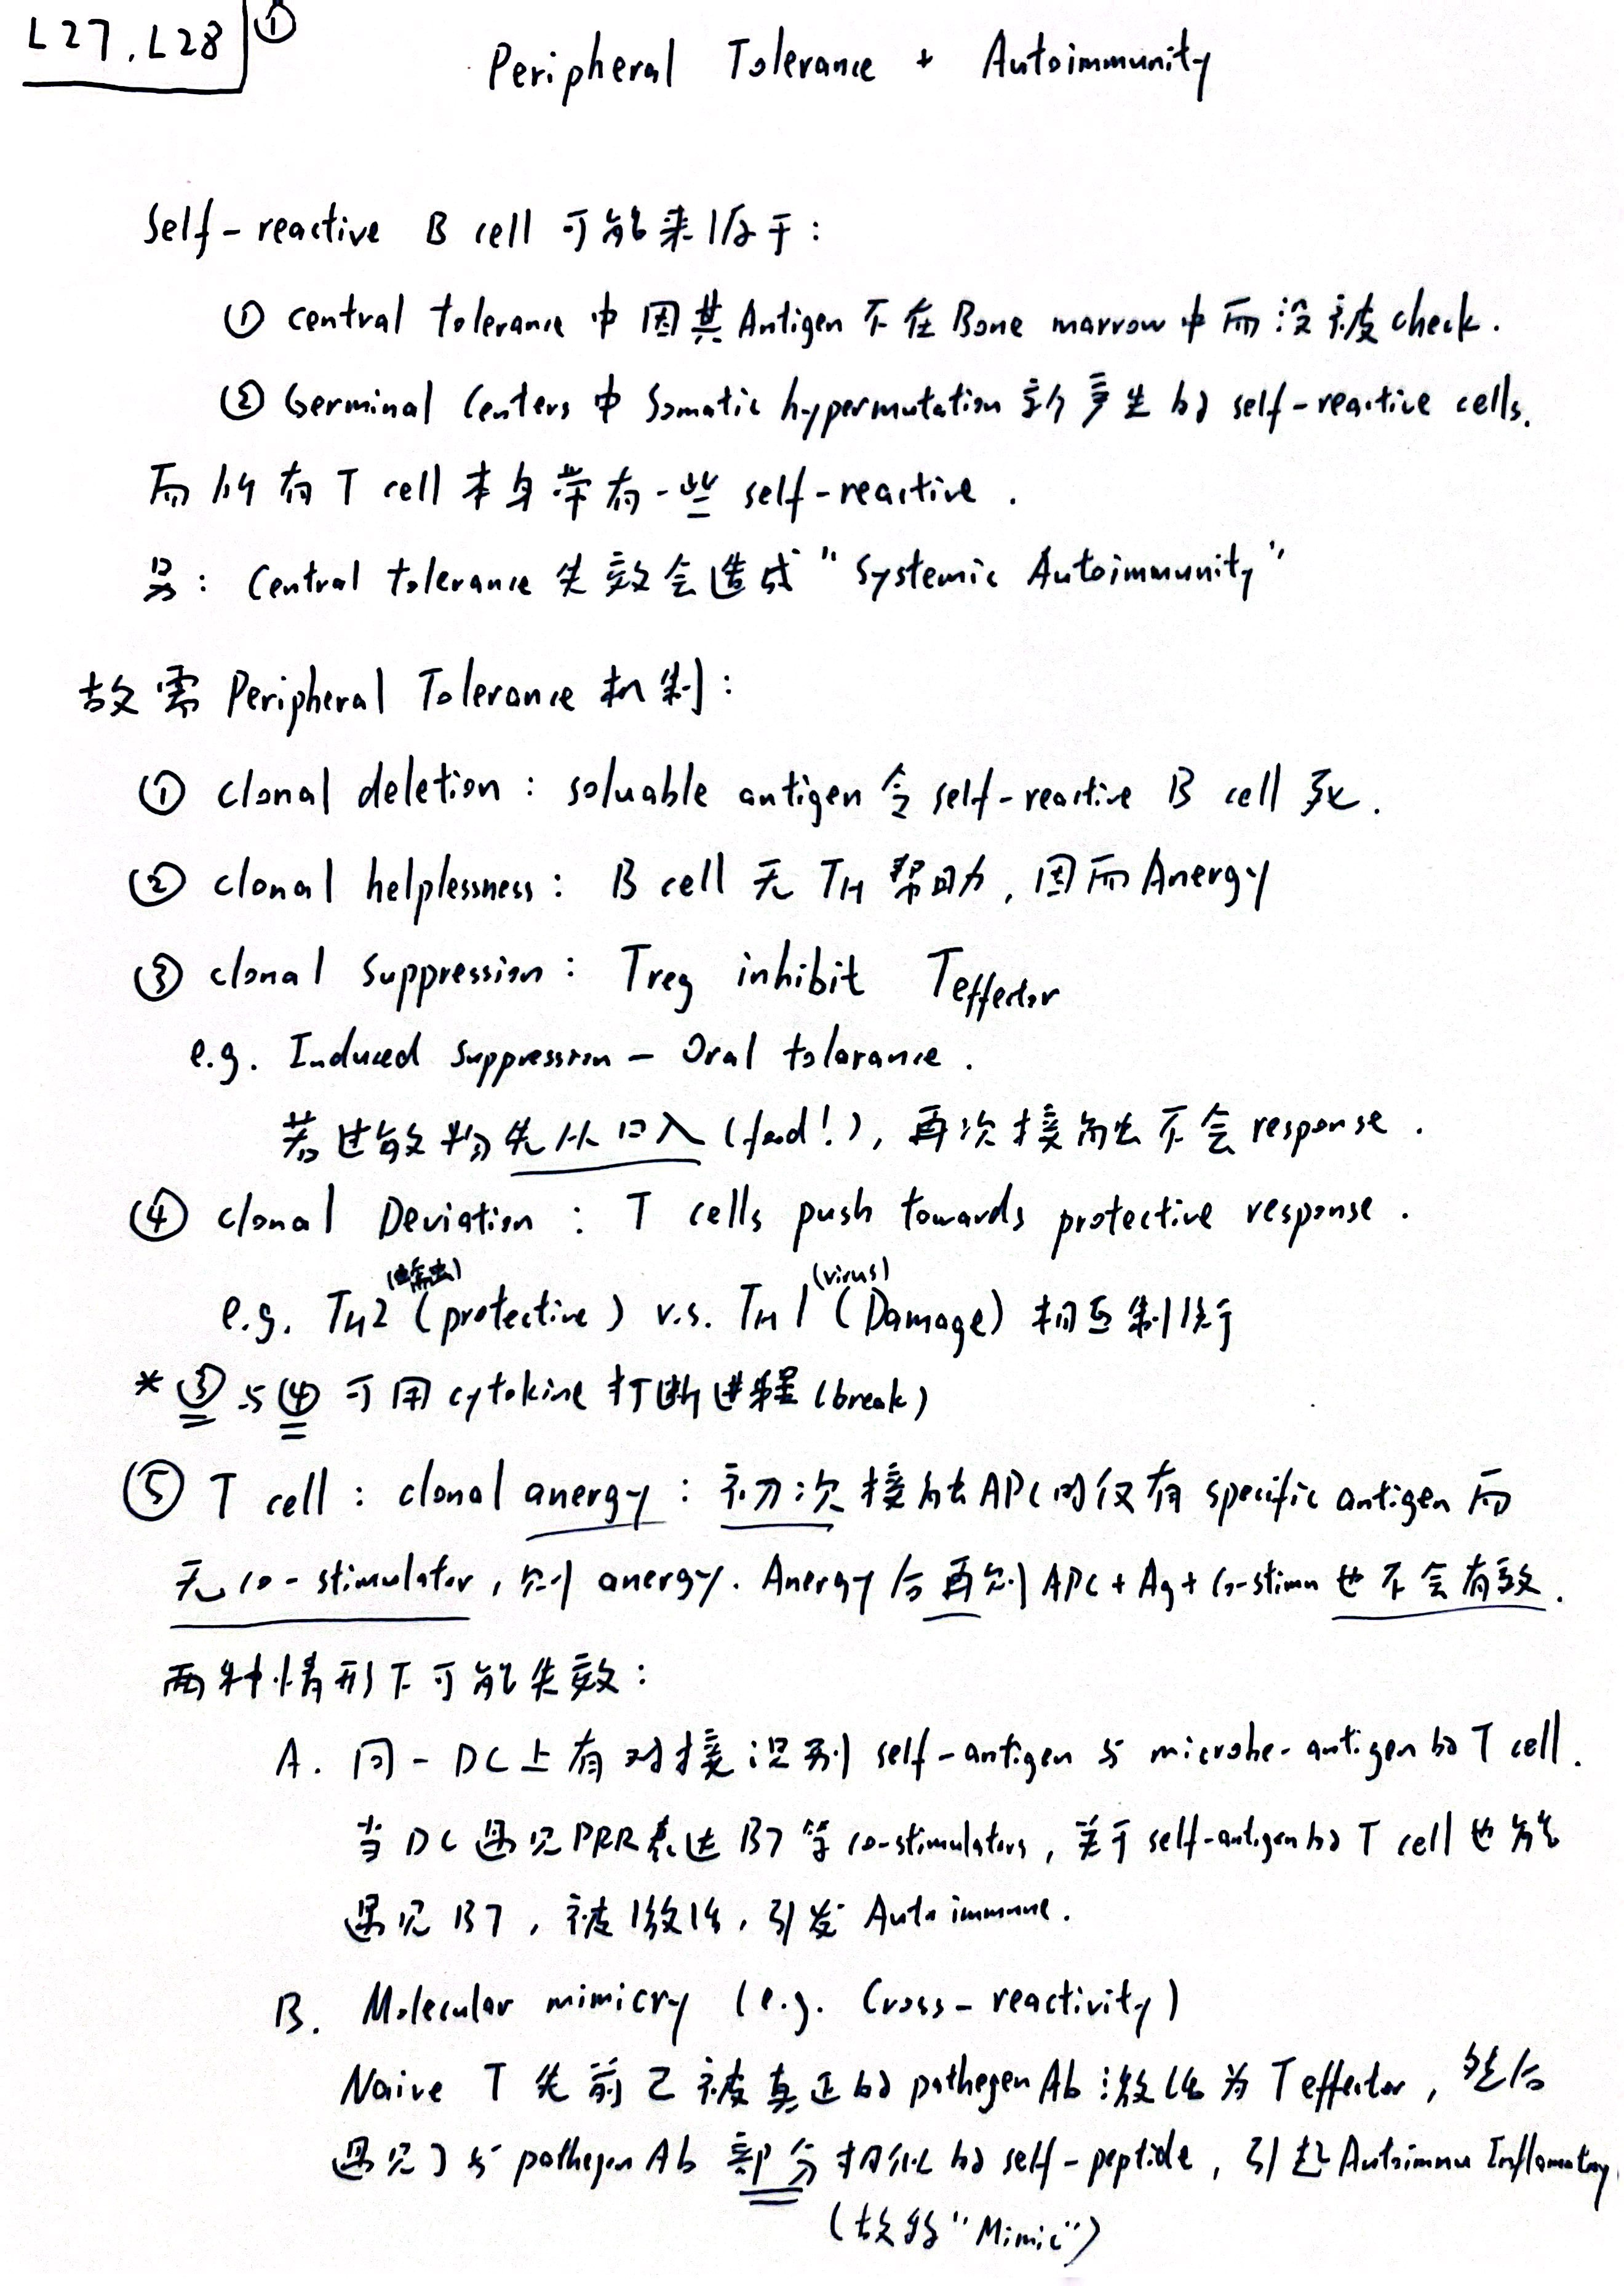 L27, L28 ①
Peripheral Tolerance + Autoimmunity
Self-reactive B cell 可能来源于：
① central tolerance 中因其 Antigen 不在 Bone marrow 中而没被 check.
② Germinal Centers 中 Somatic hypermutation 新产生的 self-reactive cells.
而所有 T cell 本身带有一些 self-reactive.
另：Central tolerance 失效会造成 "Systemic Autoimmunity"
故需 Peripheral Tolerance 机制：
① clonal deletion: soluable antigen 令 self-reactive B cell 死.
② clonal helplessness: B cell 无 TH 帮助, 因而 Anergy
③ clonal suppression: Treg inhibit Teffector
e.g. Induced suppression - Oral tolarance.
若过敏物先从口入 (fed!), 再次接触不会 response.
④ clonal Deviation: T cells push towards protective response.
(virus)
e.g. TH2 (protective) v.s. TH1 (Damage) 相互制衡
* ③与④ 可用 cytokine 打断进程 (break)
⑤ T cell: clonal anergy: 初次接触 APC 时仅有 specific antigen 而
无 co-stimulator, 则 anergy. Anergy 后再测 APC + Ag + Co-stimu 也不会有效.
两种情形下可能失效：
A. 同一 DC 上有对接识别 self-antigen 与 microbe-antigen 的 T cell.
当 DC 遇见 PRR 表达 B7 等 co-stimulators, 关于 self-antigen 的 T cell 也能
遇见 B7, 被激活, 引发 Autoimmune.
B. Molecular mimicry (e.g. Cross-reactivity)
Naive T 先前已被真正的 pathegen Ab 激活为 T effector, 然后
遇见了与 pathegen Ab 部分相似的 self-peptide, 引起 Autoimmu Inflamatory.
(故为 "Mimic")